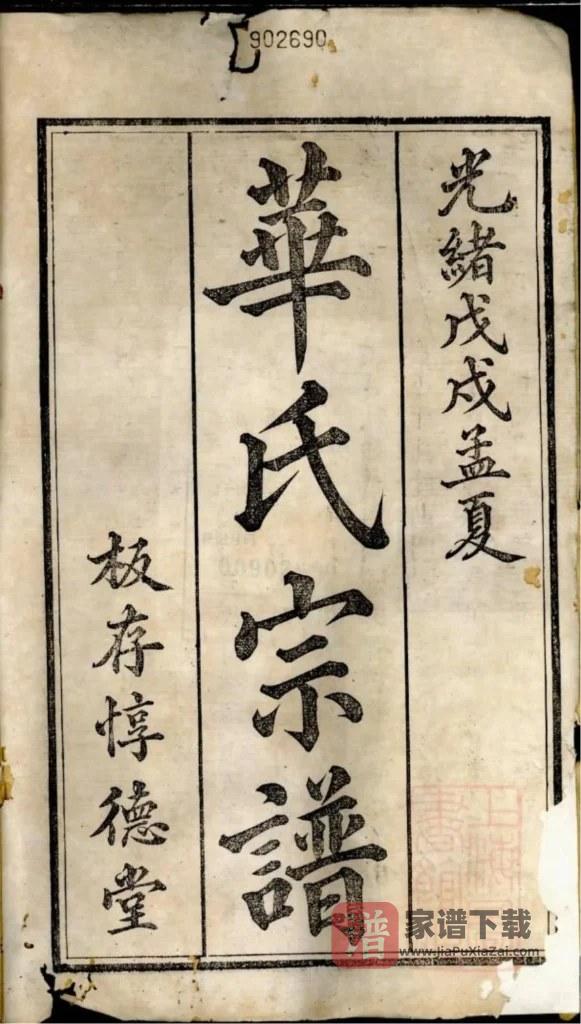 902690
光緒戊戌孟夏
華氏宗譜
板存惇德堂
譜
家谱下载
www.JiaPuXiaZai.com